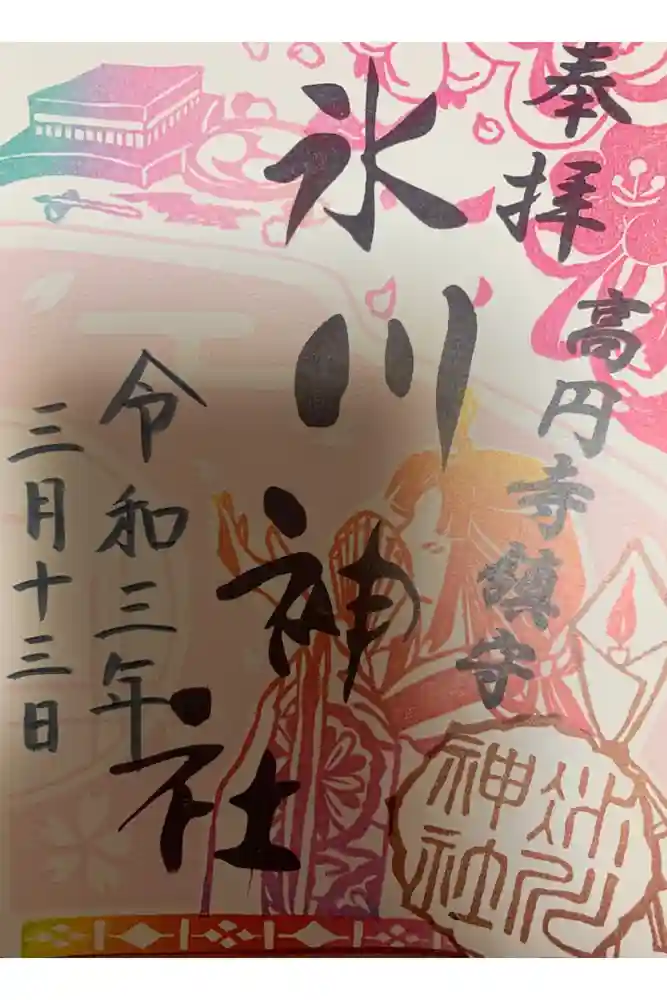 奉拝
高円寺鎮守
氷川神社
令和三年
三月十三日
氷川
神社